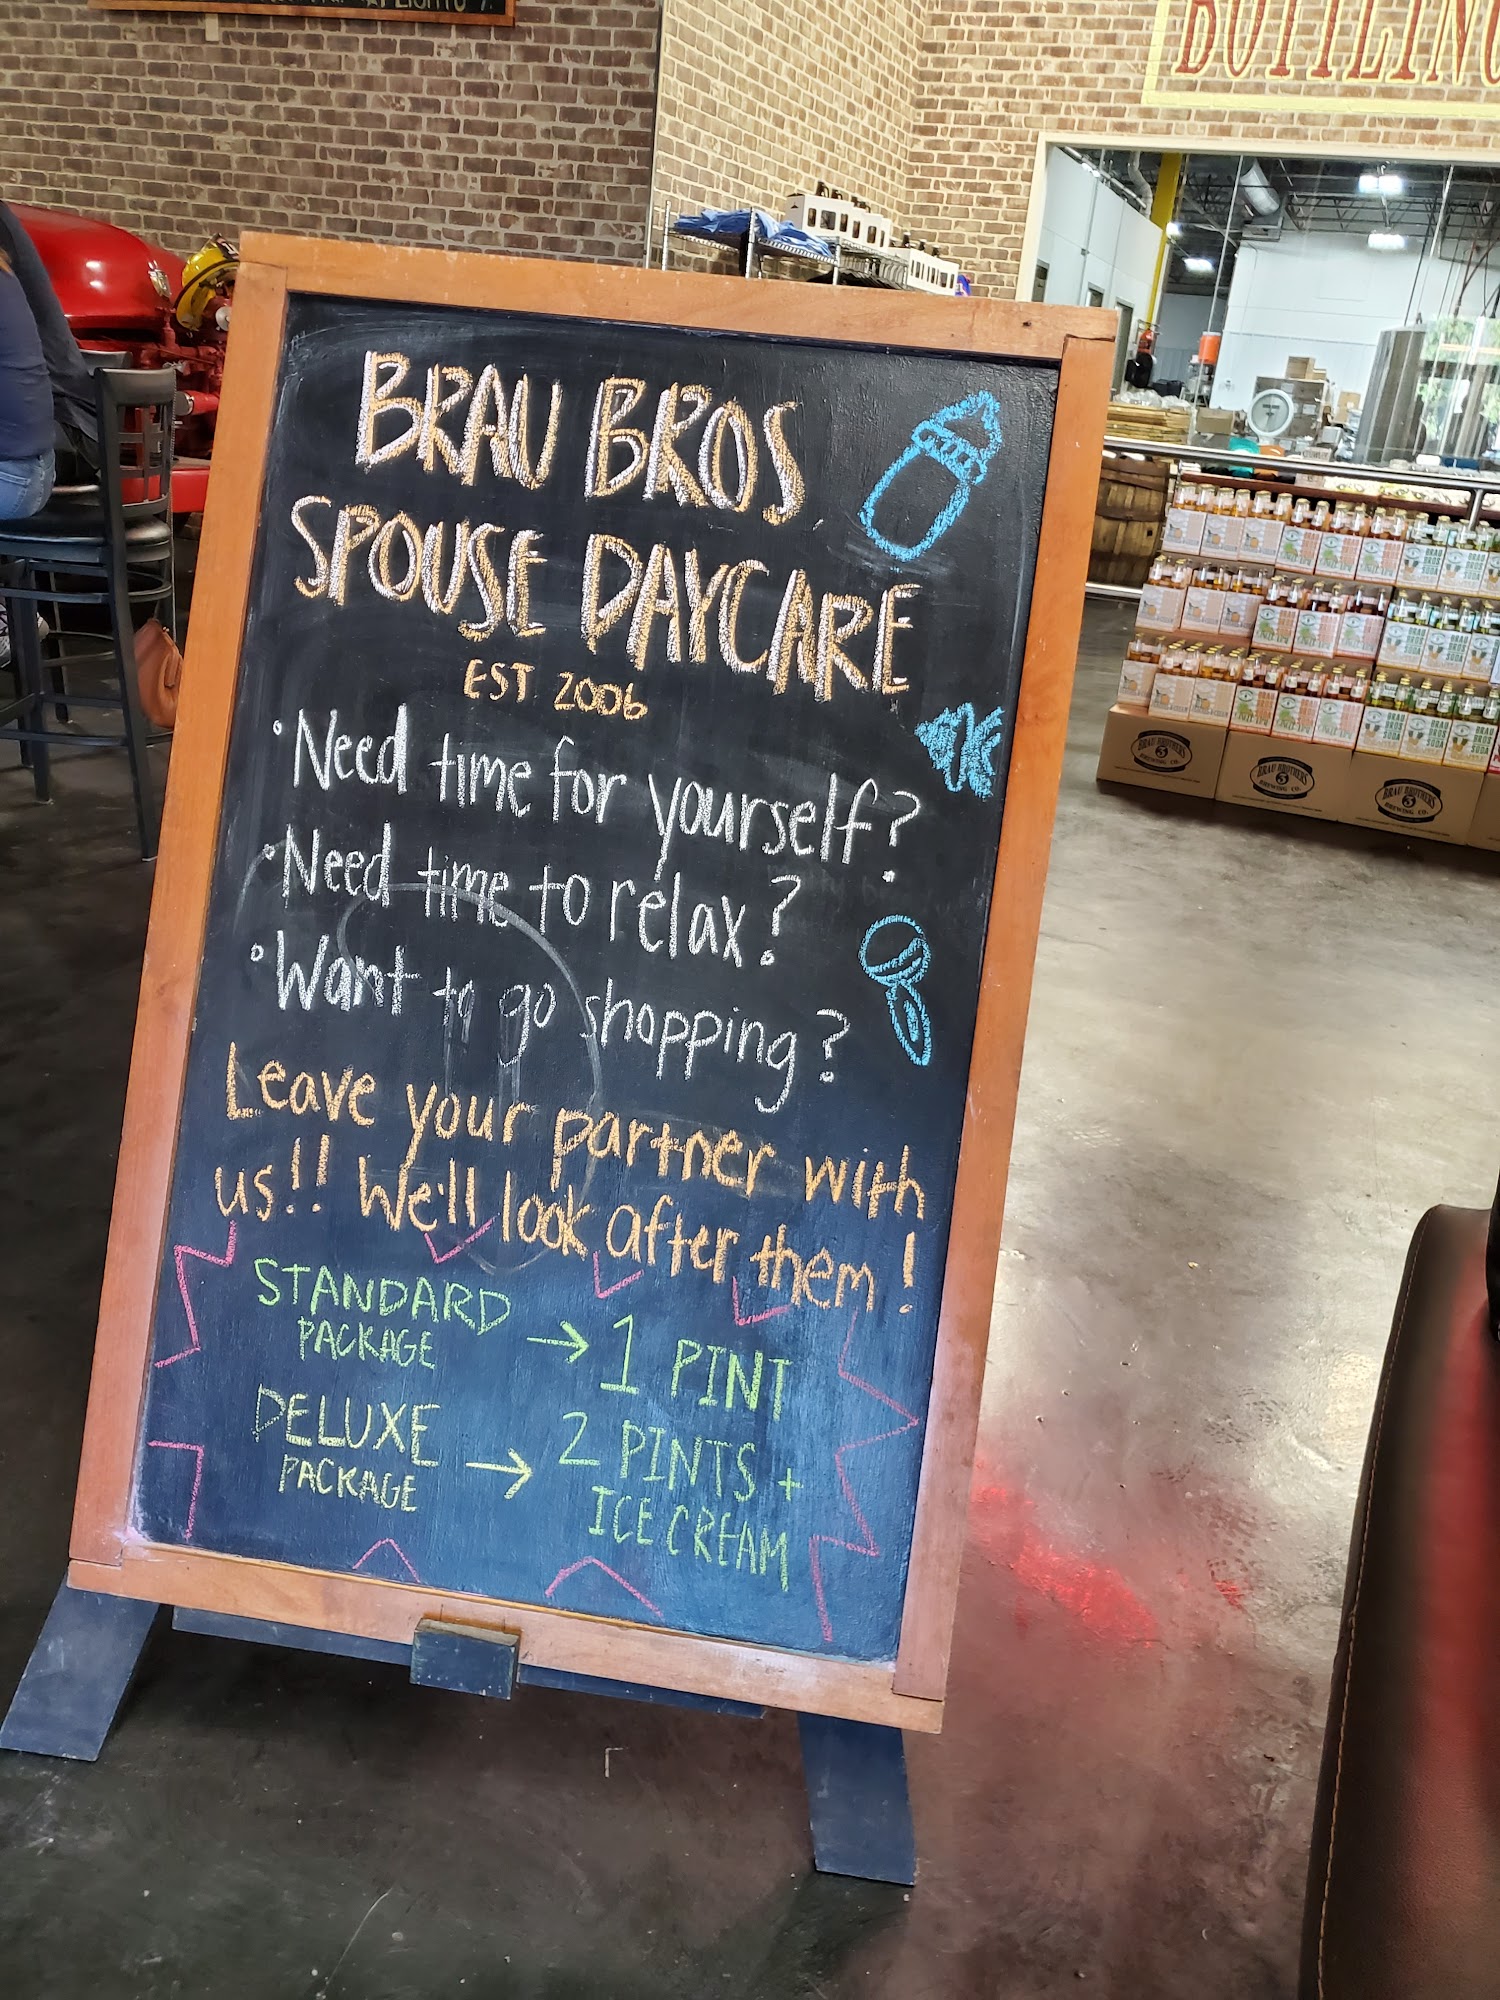 BOTTLING
BRAU BROS
SPOUSE DAYCARE
EST 2006
• Need time for yourself?
• Need time to relax?
• Want to go shopping?
Leave your partner with
us!! We'll look after them!
STANDARD
PACKAGE → 1 PINT
DELUXE
PACKAGE → 2 PINTS +
ICE CREAM
BRAU BROTHERS
BREWING CO.
BRAU BROTHERS
BREWING CO.
BRAU BROTHERS
BREWING CO.
BRAU
BROS
SODA